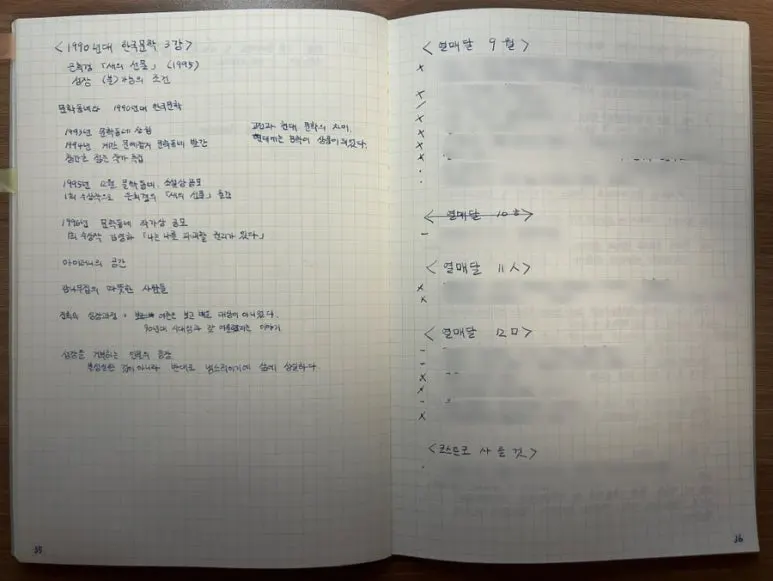 <1990년대 한국문학 3강>
은희경 「새의 선물」 (1995)
성장 (불)가능의 조건
문학동네와 1990년대 한국문학
1993년 문학동네 설립
1994년 계간 문예잡지 문학동네 발간
젊은 작가
고전과 현대 문학의 차이.
현대에는 문학이 상품이 되었다.
1995년 문학동네 소설상 공모
1회 수상작으로 은희경의 「새의 선물」
1996년 문학동네 작가상 공모
1회 수상작 김영하 「나는 나를 파괴할 권리가 있다」
아이러니의 공간
감나무집의 따뜻한 사람들
진희의 성장과정 어른은 보고 배울 대상이 아니었다.
90년대 시대상과 잘 이야기
성장을 거부하는 인물의 등장
것이 아니라 반대로 삶에 성실하다.
35
<열매달 9일>
×
×
/
×
×
×
×
.
.
<열매달 10일>
-
<열매달 11시>
×
×
<열매달 12일>
-
-
×
×
-
×
<코스트코 사올것>
.
36